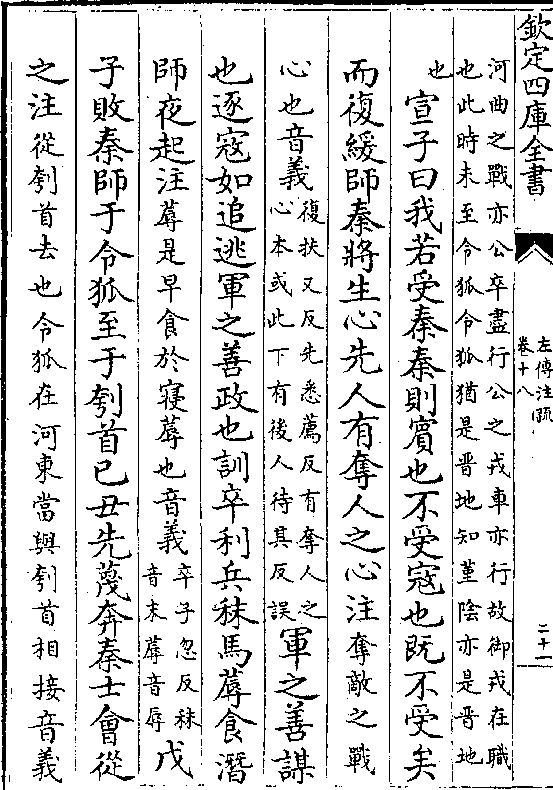 欽定四庫全書
左傳注疏
卷十八
二十一
河曲之戰亦公卒盡行公之戎車亦行故御戎在職
也此時未至令狐令狐猶是晉地知堇陰亦是晉地
也
宣子曰我若受秦秦則賓也不受寇也既不受矣
而復緩師秦將生心先人有奪人之心注奪敵之戰
心也音義復扶又反先悉薦反有奪人之
心本或此下有後人待其反誤
軍之善謀
也逐寇如追逃軍之善政也訓卒利兵秣馬蓐食潛
師夜起注蓐是早食於寝蓐也音義卒子忽反秣
音末蓐音辱
戊
子敗秦師于令狐至于刳首已丑先蔑奔秦士會從
之注從刳首去也令狐在河東當與刳首相接音義